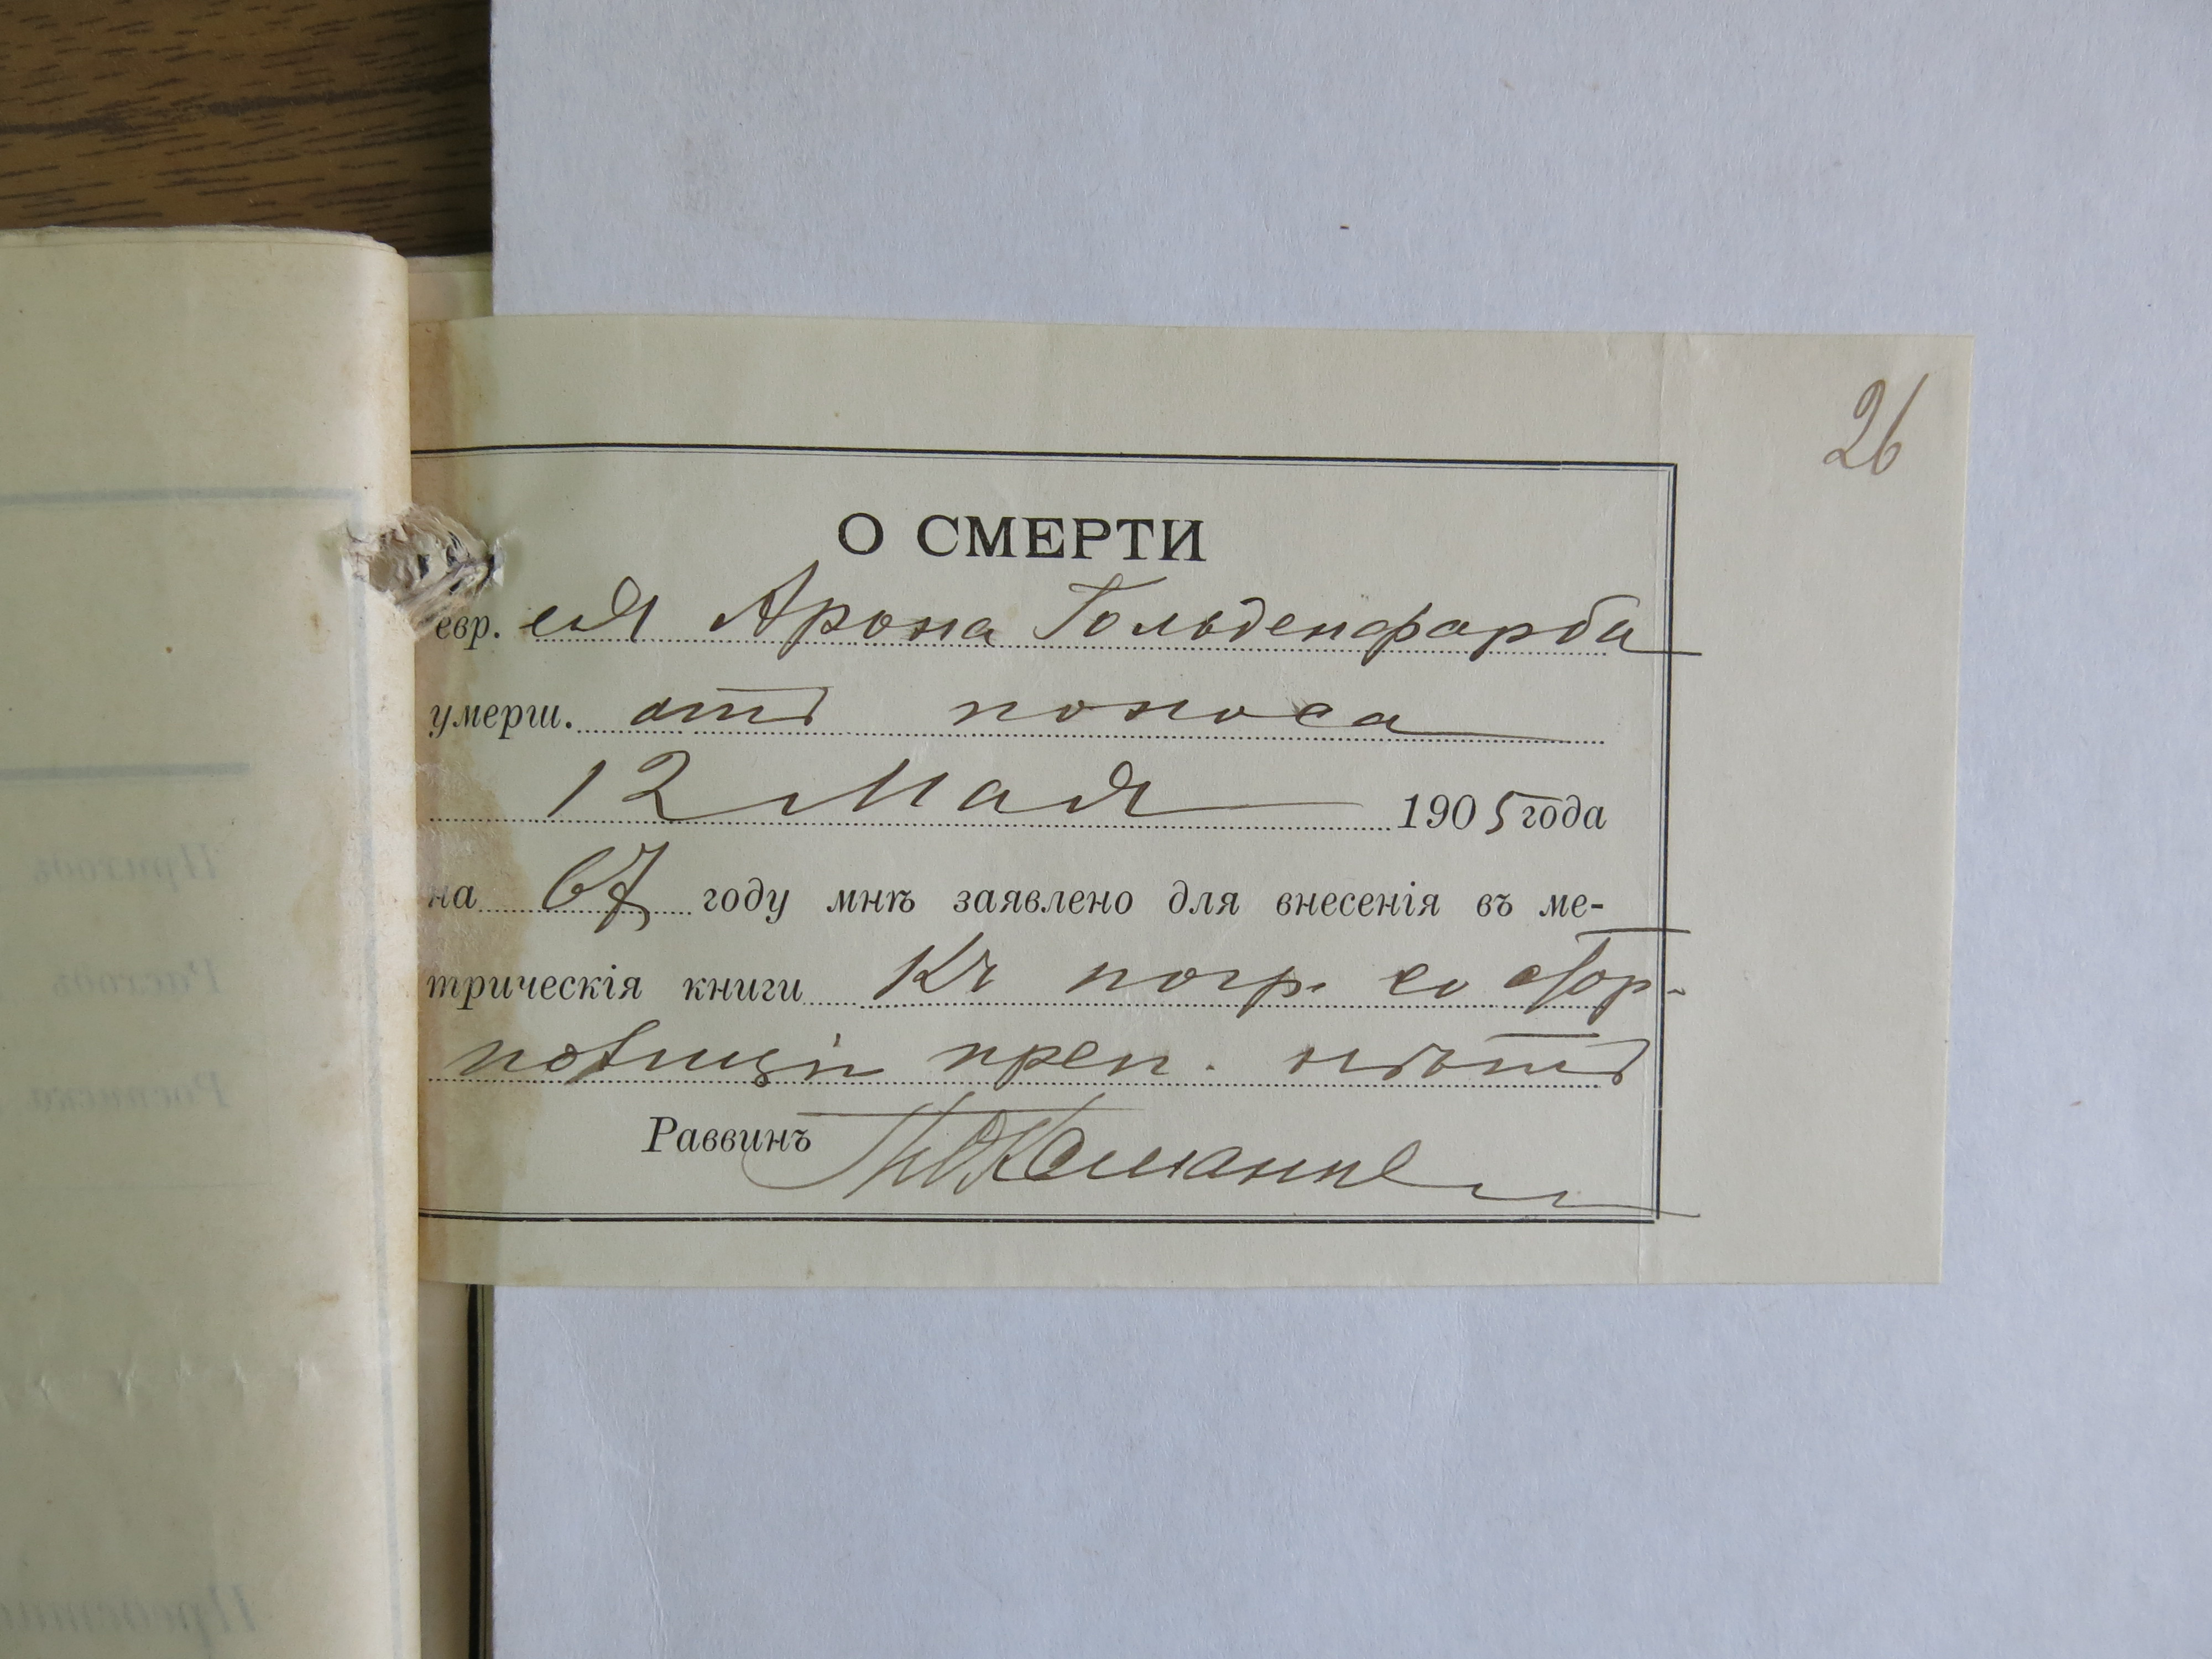 26
О СМЕРТИ
евр. ея Арона Гольденфарба
умерш. отъ поноса
12 Мая 1905 года
на 67 году мнѣ заявлено для внесенія въ ме-
трическія книги Къ погр. со стор-
поѣиціи преп. нѣтъ
Раввинъ
Приходъ
Расходъ
Росписка